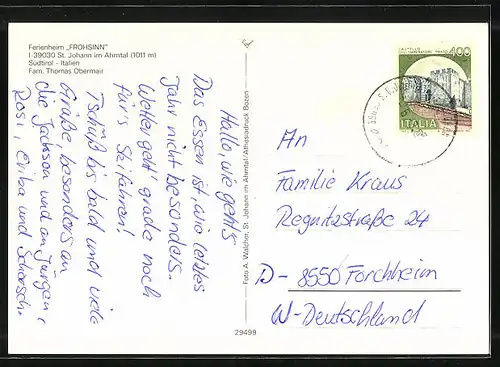 Ferienheim „FROHSINN"
I-39030 St. Johann im Ahrntal (1011 m)
Südtirol - Italien
Fam. Thomas Obermair
Hallo, wie geht's
Das Essen ist, wie letztes
Jahr nicht besonders.
Wetter geht grade noch
für's Skifahren!
Tschüß bis bald und viele
Grüße, besonders an
die Jackson und an Jürgen,
Rosi, Erika und
Foto A. Walcher, St. Johann im Ahrntal/Athesiadruck Bozen
29499
CASTELLO
DELL'IMPERATORE PRATO 400
ITALIA
An
Familie Kraus
Regnitzstraße 24
D - 8550 Forchheim
W-Deutschland